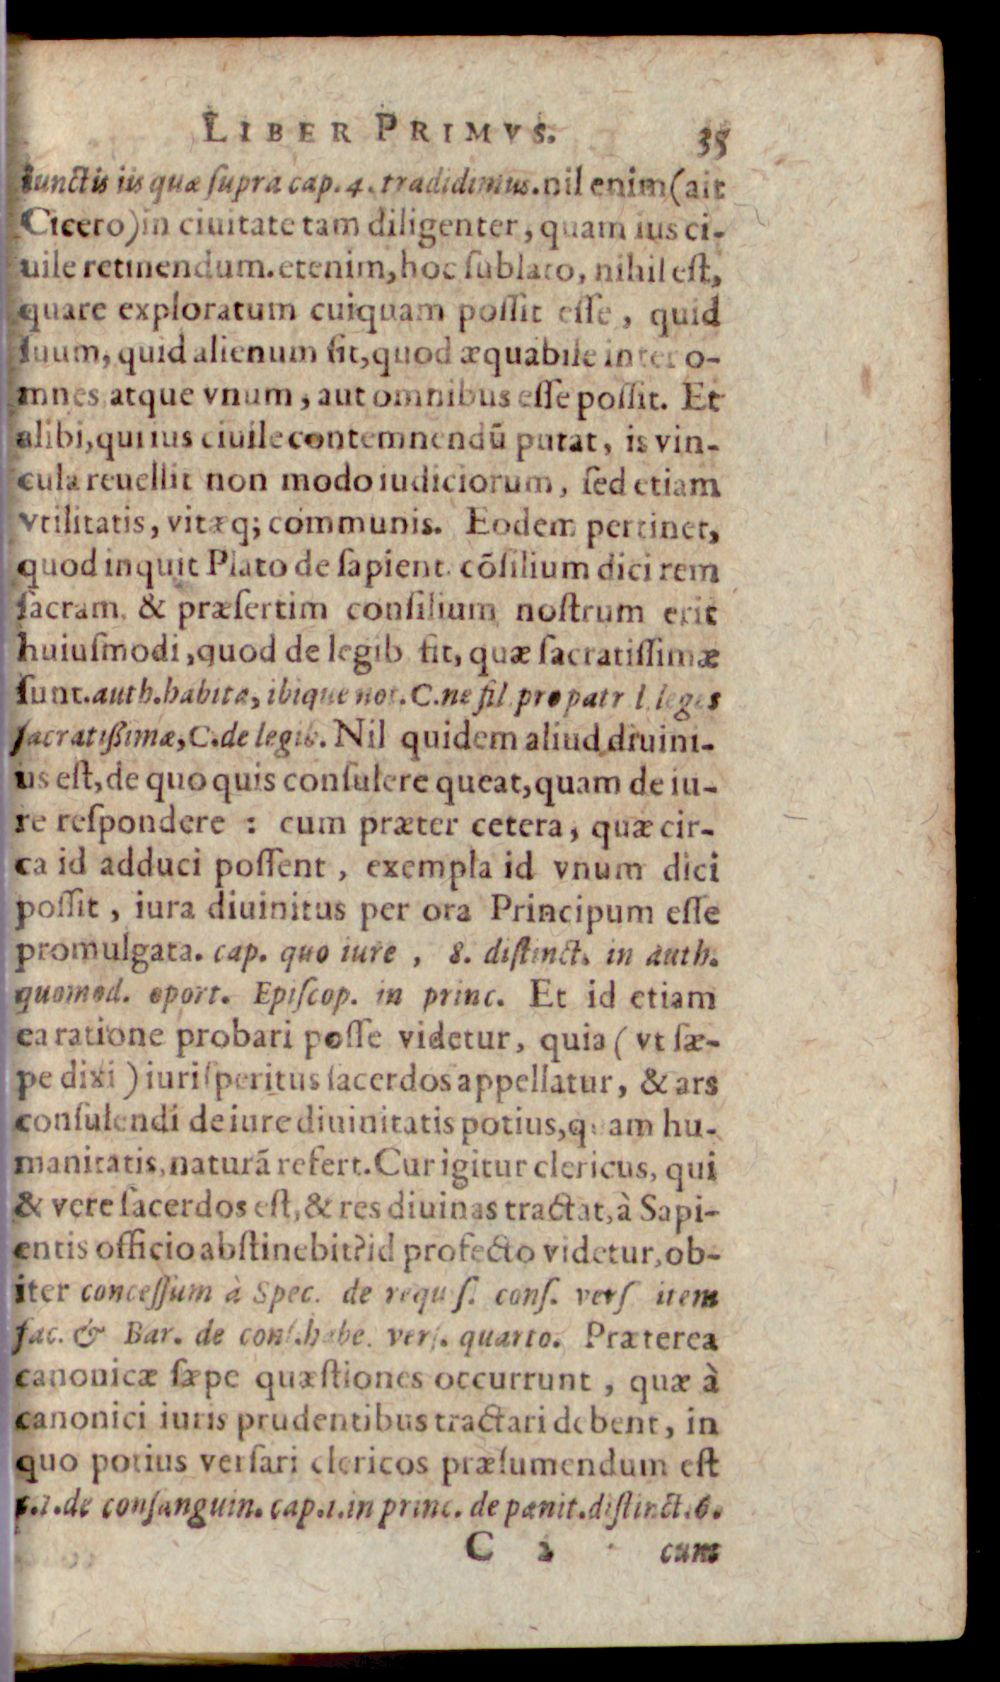 LIBER PRIMVS. 35
iunctis iis quæ ſupra cap. 4. tradidimus. nil enim (ait
Cicero) in ciuitate tam diligenter, quam ius ci-
uile retinendum. etenim, hoc ſublato, nihil eſt,
quare exploratum cuiquam poſſit eſſe, quid
ſuum, quid alienum ſit, quod æquabile inter o-
mnes atque vnum, aut omnibus eſſe poſſit. Et
alibi, qui ius ciuile contemnendū putat, is vin-
cula reuellit non modo iudiciorum, ſed etiam
vtilitatis, vitæq; communis. Eodem pertinet,
quod inquit Plato de ſapient. cōſilium dici rem
ſacram. & præſertim conſilium noſtrum erit
huiuſmodi, quod de legib. fit, quæ ſacratiſſimæ
ſunt. auth. habita, ibique not. C. ne fil. pro patr. l. leges
ſacratißimæ, C. de legib. Nil quidem aliud diuini-
us eſt, de quo quis conſulere queat, quam de iu-
re reſpondere : cum præter cetera, quæ cir-
ca id adduci poſſent, exempla id vnum dici
poſſit, iura diuinitus per ora Principum eſſe
promulgata. cap. quo iure, 8. diſtinct. in auth.
quomod. oport. Epiſcop. in princ. Et id etiam
ea ratione probari poſſe videtur, quia ( vt ſæ-
pe dixi ) iuriſperitus ſacerdos appellatur, & ars
conſulendi de iure diuinitatis potius, quam hu-
manitatis, naturā refert. Cur igitur clericus, qui
& vere ſacerdos eſt, & res diuinas tractat, à Sapi-
entis officio abſtinebit? id profecto videtur, ob-
iter conceſſum à Spec. de requiſ. conſ. verſ. item
ſac. & Bar. de conſ. habe. verſ. quarto. Præterea
canonicæ ſæpe quæſtiones occurrunt, quæ à
canonici iuris prudentibus tractari debent, in
quo potius verſari clericos præſumendum eſt
c. 1. de conſanguin. cap. 1. in princ. de pænit. diſtinct. 6.
C 2 cum